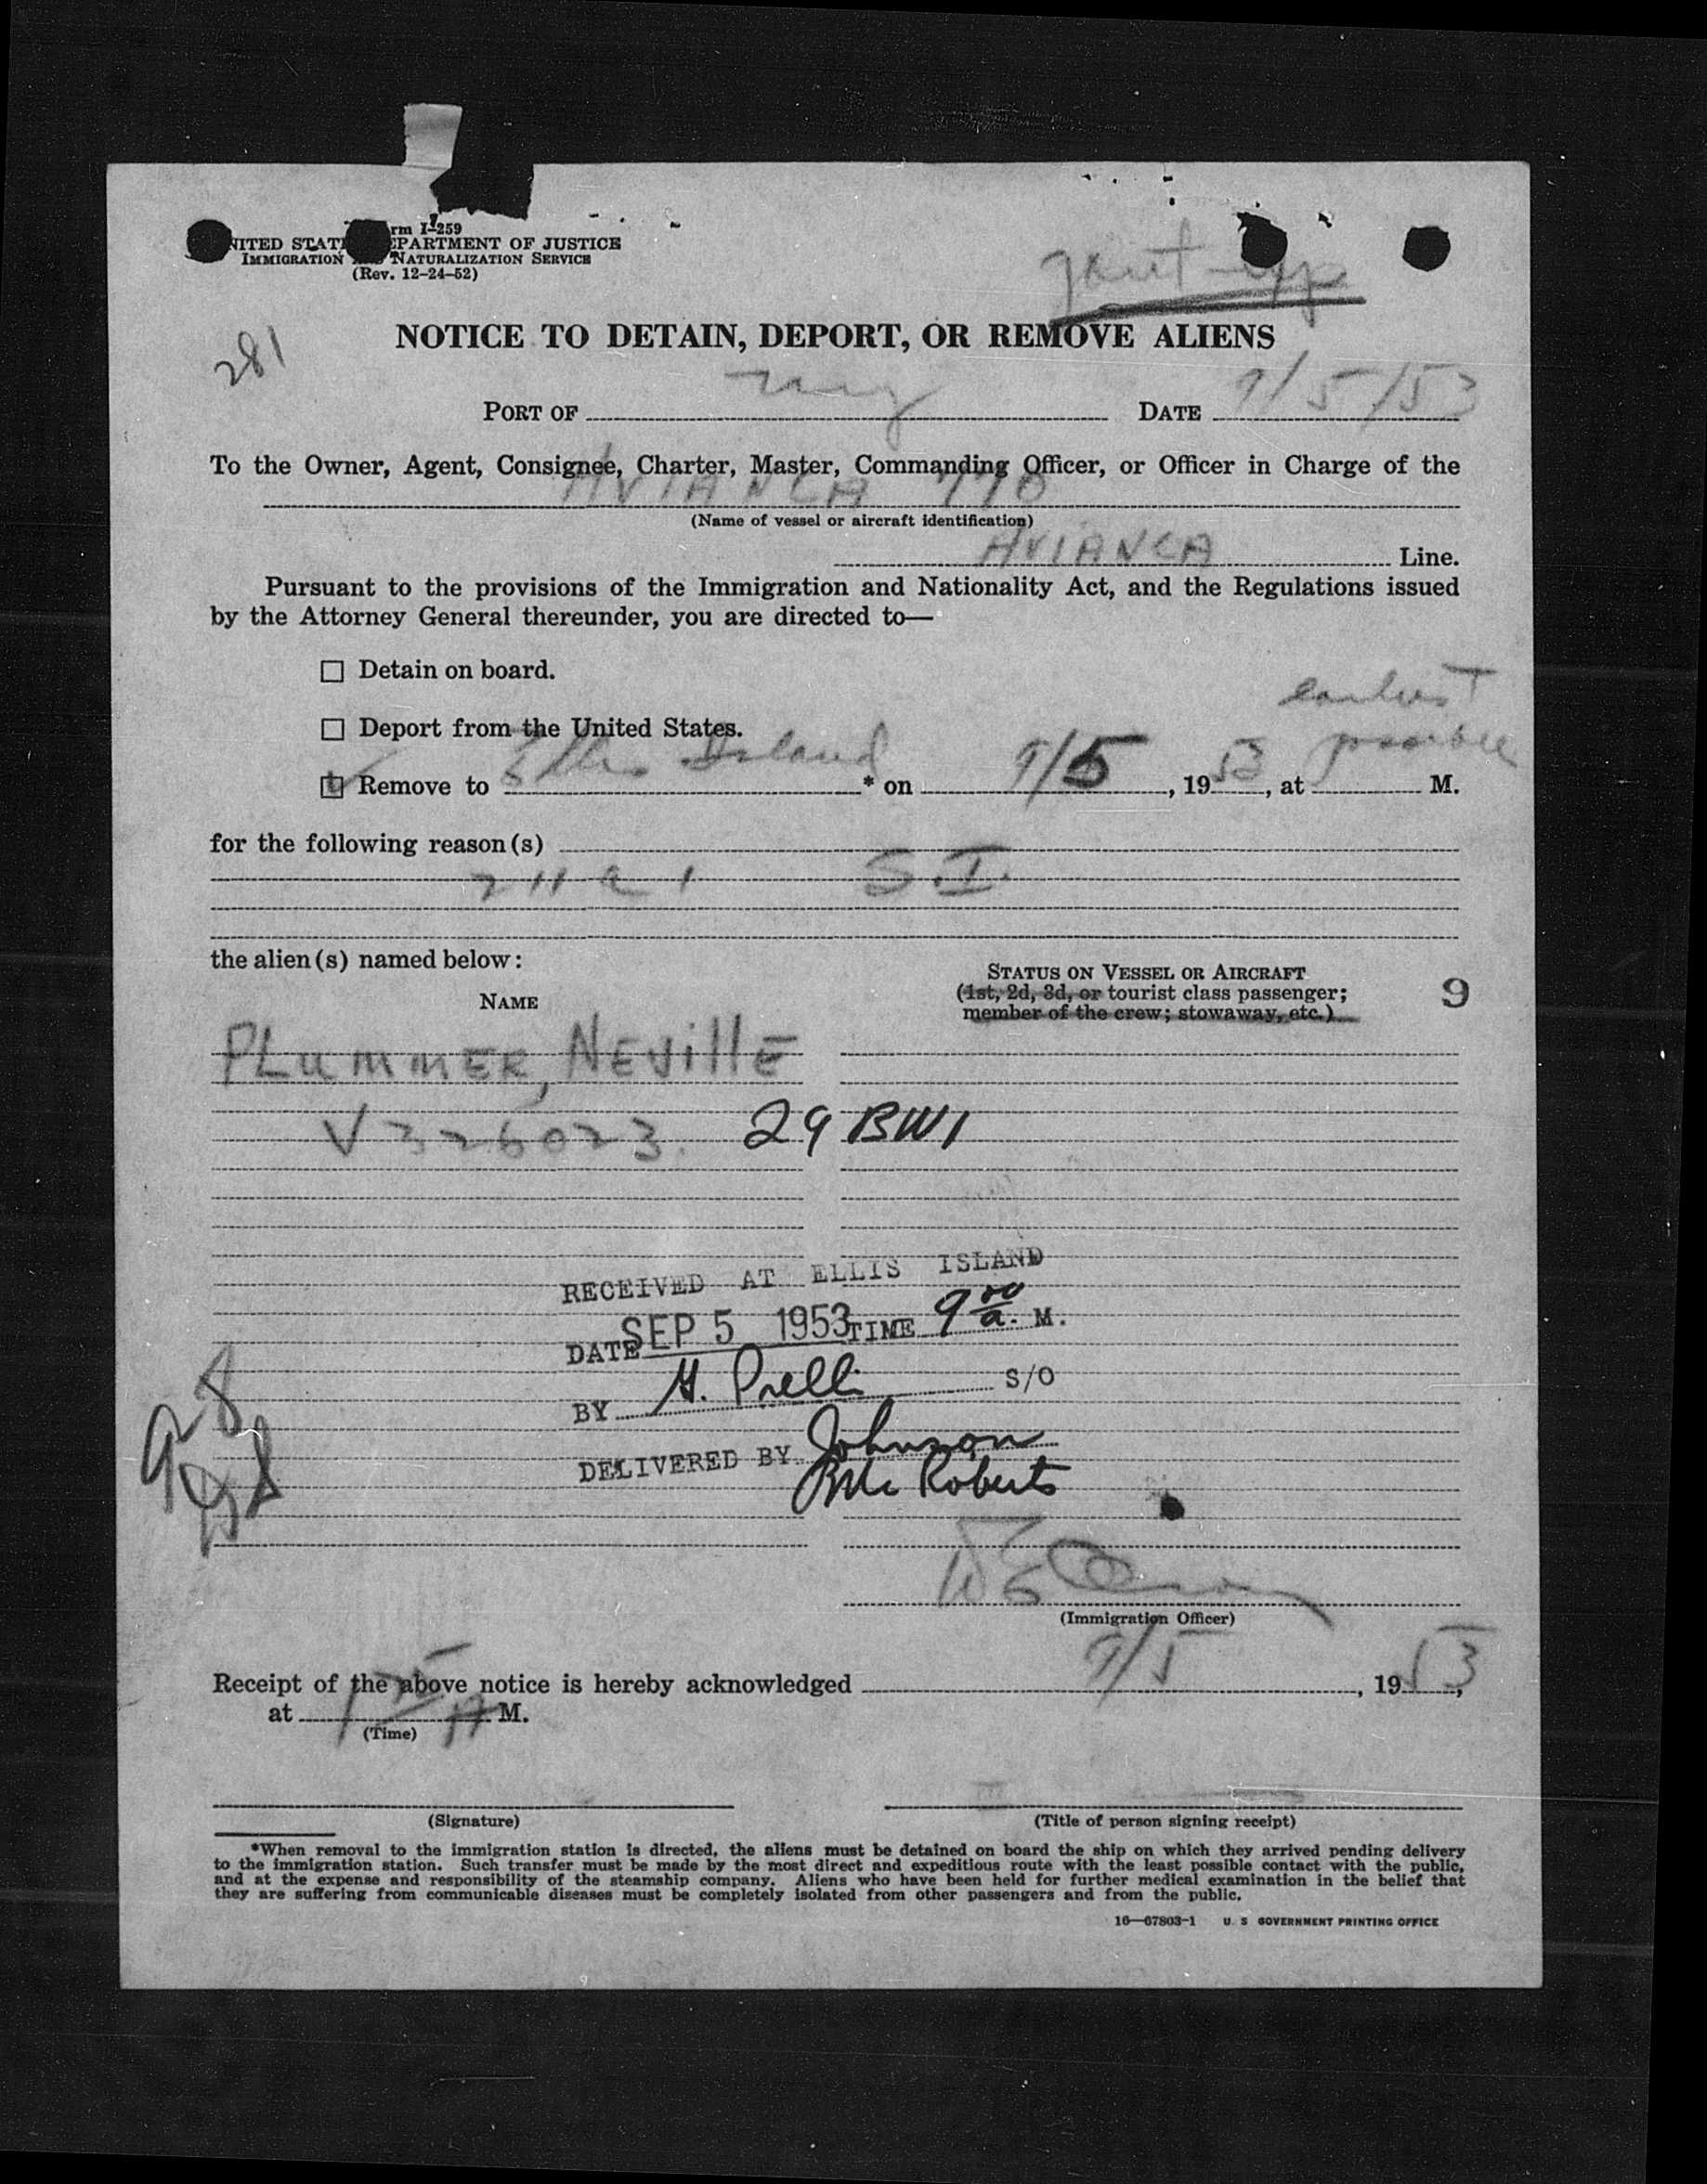 rm I-259
NITED STAT PARTMENT OF JUSTICE
IMMIGRATION NATURALIZATION SERVICE
(Rev. 12-24-52)
281
NOTICE TO DETAIN, DEPORT, OR REMOVE ALIENS
PORT OF NY DATE 9/5/53
To the Owner, Agent, Consignee, Charter, Master, Commanding Officer, or Officer in Charge of the
AVIANCA 770
(Name of vessel or aircraft identification)
AVIANCA Line.
Pursuant to the provisions of the Immigration and Nationality Act, and the Regulations issued
by the Attorney General thereunder, you are directed to—
☐ Detain on board.
☐ Deport from the United States.
earliest possible
☑ Remove to Ellis Island * on 9/5, 1953, at M.
for the following reason(s)
S.I.
the alien(s) named below:
STATUS ON VESSEL OR AIRCRAFT
NAME
(1st, 2d, 3d, or tourist class passenger;
member of the crew; stowaway, etc.)
9
PLUMMER, NEVILLE
V326023. 29 BWI
RECEIVED AT ELLIS ISLAND
DATE SEP 5 1953 TIME 9 00 a. M.
BY S/O
DELIVERED BY Johnson
Roberts
98
(Immigration Officer)
Receipt of the above notice is hereby acknowledged 9/5, 1953,
at A M.
(Time)
(Signature) (Title of person signing receipt)
*When removal to the immigration station is directed, the aliens must be detained on board the ship on which they arrived pending delivery
to the immigration station. Such transfer must be made by the most direct and expeditious route with the least possible contact with the public,
and at the expense and responsibility of the steamship company. Aliens who have been held for further medical examination in the belief that
they are suffering from communicable diseases must be completely isolated from other passengers and from the public.
16—67803-1 U. S GOVERNMENT PRINTING OFFICE